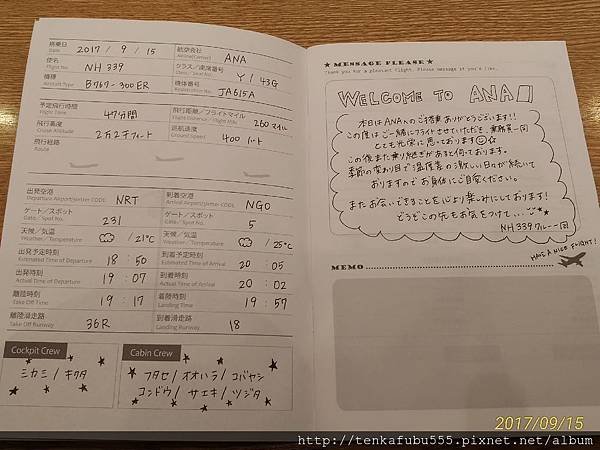 搭乗日 Date 2017 / 9 / 15
航空会社 Airline(Carrier) ANA
便名 Flight No. NH 339
クラス／座席番号 Class / Seat No. Y / 43G
機種 Aircraft Type B767-300ER
機体番号 Registration No. JA615A
予定飛行時間 Flight Time 47分間
飛行距離／フライトマイル Flight Distance / Flight Mile 260マイル
飛行高度 Cruise Altitude 2万2千フィート
巡航速度 Ground Speed 400ノート
飛行経路 Route
出発空港 Departure Airport(3letter CODE) NRT
到着空港 Arrival Airport(3letter CODE) NGO
ゲート／スポット Gate / Spot No. 231
ゲート／スポット Gate / Spot No. 5
天候／気温 Weather / Temperature / 21℃
天候／気温 Weather / Temperature / 25℃
出発予定時刻 Estimated Time of Departure 18 : 50
到着予定時刻 Estimated Time of Arrival 20 : 05
出発時刻 Actual Time of Departure 19 : 07
到着時刻 Actual Time of Arrival 20 : 02
離陸時刻 Take Off Time 19 : 17
着陸時刻 Landing Time 19 : 57
離陸滑走路 Take Off Runway 36R
到着滑走路 Landing Runway 18
Cockpit Crew
ミカミ / キクタ
Cabin Crew
フタセ / オオハラ / コバヤシ
コンドウ / サエキ / ツジタ
★ MESSAGE PLEASE ★
Thank you for a pleasant flight. Please message if you'd like.
WELCOME TO ANA
本日はANAへのご搭乗ありがとうございます!!
この度はご一緒にフライトさせていただき、乗務員一同
とても光栄に思っております☺☆
この後また乗り継ぎがあると伺っております。
季節の変わり目で温度差の激しい日々が続いて
おりますのでお身体にご自愛ください。
またお会いできることを心より楽しみにしております!
どうぞこの先もお気をつけて...
NH339クルー一同
HAVE A NICE FLIGHT!
MEMO
2017/09/15
http://tenkafubu555.pixnet.net/album